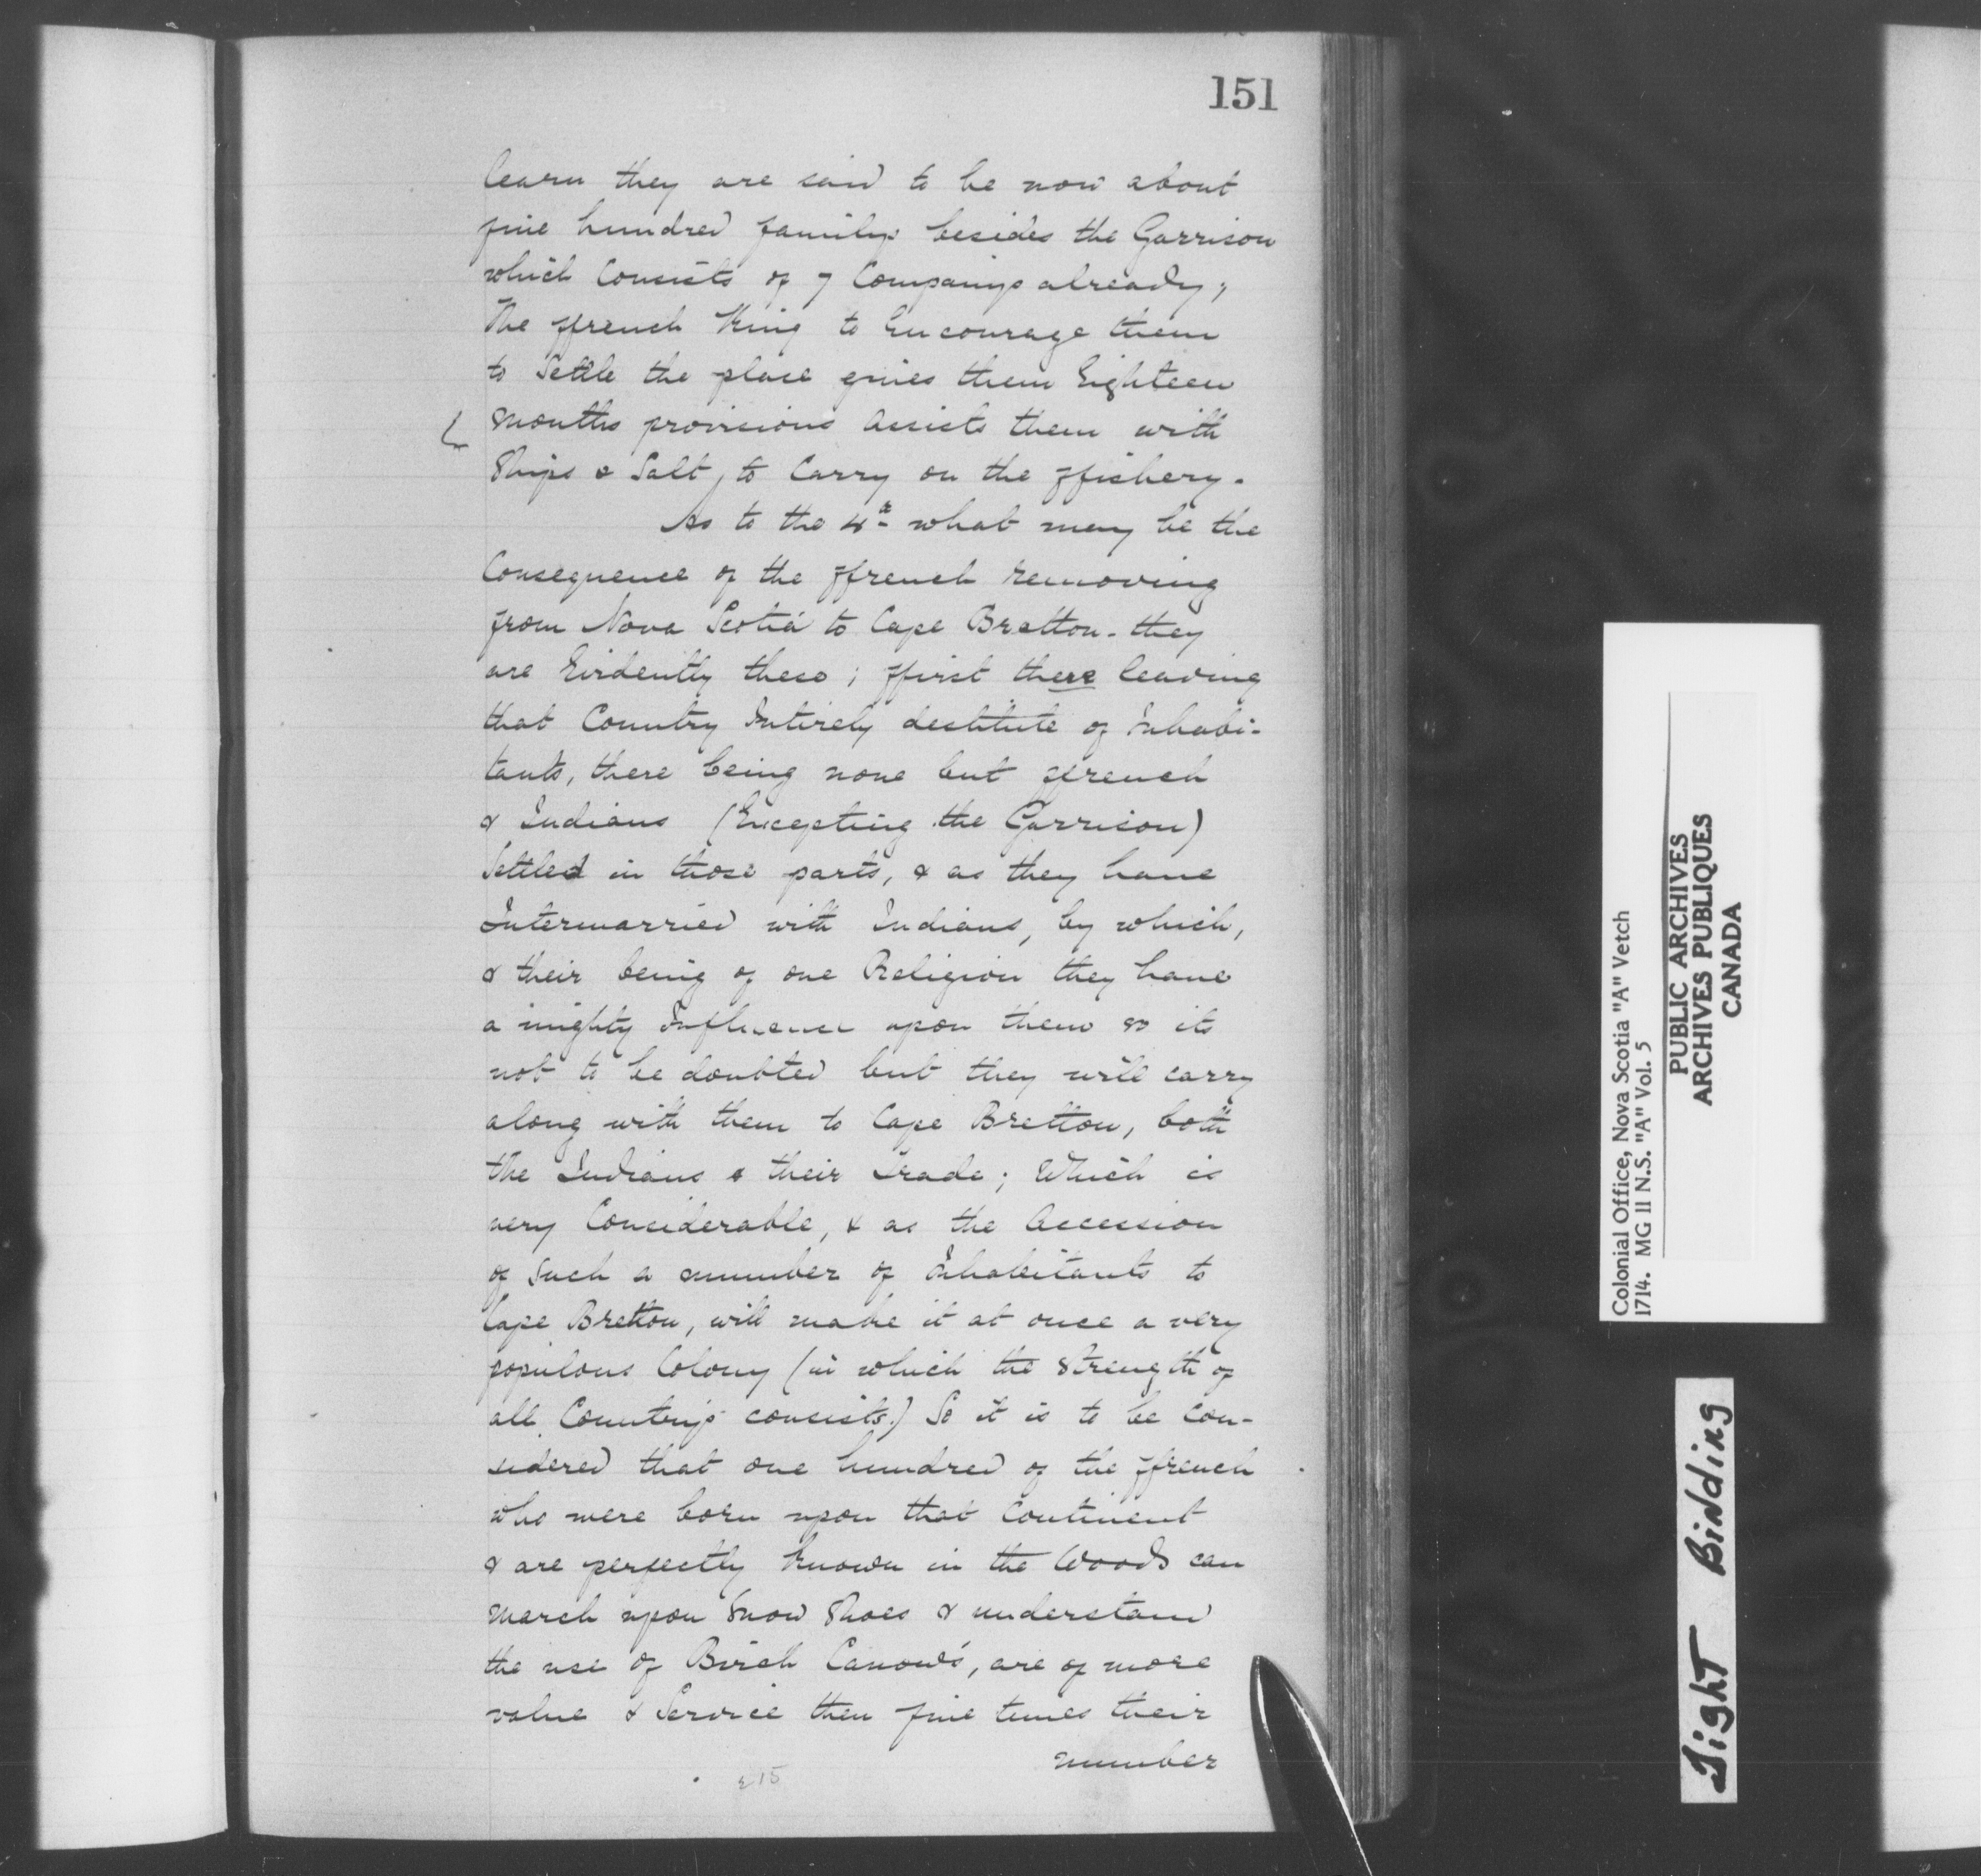 151
learn they are said to be now about
five hundred familys besides the Garrison
which Consists of 7 Companys already;
The ffrench King to Encourage them
to Settle the place gives them Eighteen
Months provisions assists them with
Ships & Salt, to Carry on the ffishery.
As to the 4th what may be the
Consequence of the ffrench removing
from Nova Scotia to Cape Bretton - they
are Evidently these; ffirst there leaving
that Country Intirely destitute of Inhabi-
tants, there being none but ffrench
& Indians (Excepting the Garrison)
Settled in those parts, & as they have
Intermarried with Indians, by which,
& their being of one Religion they have
a mighty Influence upon them so its
not to be doubted but they will carry
along with them to Cape Bretton, both
the Indians & their trade; Which is
very Considerable, & as the Accession
of such a number of Inhabitants to
Cape Bretton, will make it at once a very
populous Colony (in which the Strength of
all Countrys consists.) So it is to be Con-
sidered that one hundred of the ffrench
who were born upon that Continent
& are perfectly known in the Woods can
March upon Snow Shoes & understand
the use of Birch Canows, are of more
value & Service then five times their
number
Colonial Office, Nova Scotia "A" Vetch
1714. MG 11 N.S. "A" Vol. 5
PUBLIC ARCHIVES
ARCHIVES PUBLIQUES
CANADA
Tight Binding